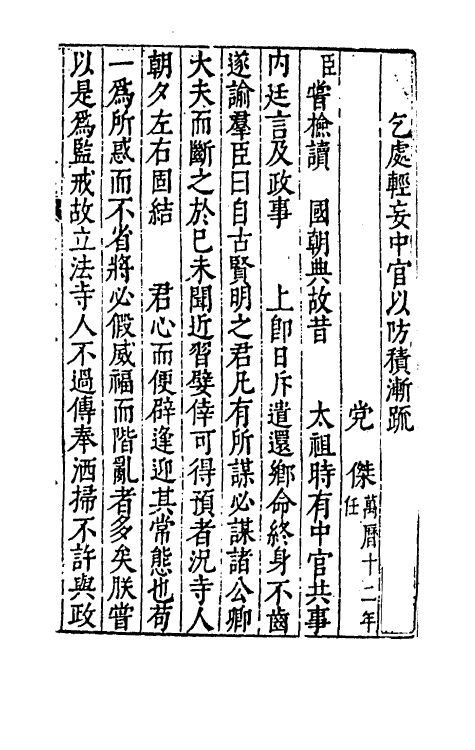 乞處輕妄中官以防積漸疏
党 傑萬曆十二年任
臣嘗檢讀 國朝典故昔 太祖時有中官共事
内廷言及政事 上卽日斥遣還鄉命終身不齒
遂諭羣臣曰自古賢明之君凡有所謀必謀諸公卿
大夫而斷之於已未聞近習嬖倖可得預者況寺人
朝夕左右固結 君心而便辟逢迎其常態也苟
一爲所惑而不省將必假威福而階亂者多矣朕嘗
以是爲監戒故立法寺人不過傳奉洒掃不許與政